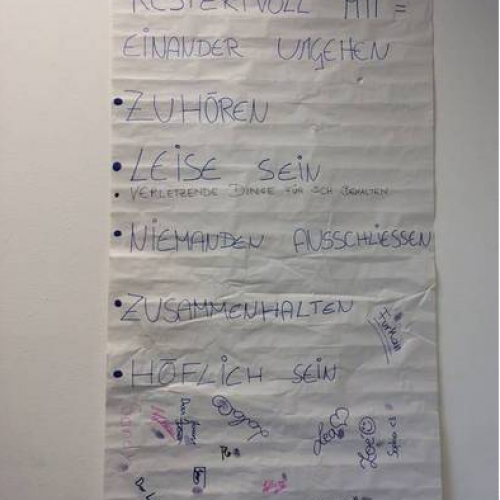 RESPEKTVOLL MIT =
EINANDER UMGEHEN
• ZUHÖREN
• LEISE SEIN
• VERLETZENDE DINGE FÜR SICH BEHALTEN
• NIEMANDEN AUSSCHLIESSEN
• ZUSAMMENHALTEN
Furkan
• HÖFLICH SEIN